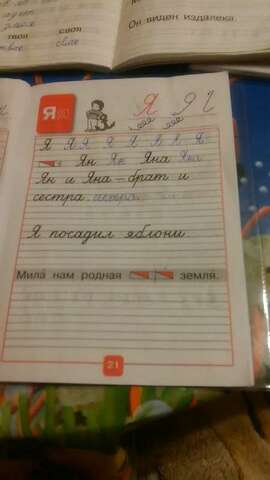 твой свой
Он виден издалека.
Я
Я Я
Я Я Я Я Я Я Я Я
Ян Ян Яна Яна
Ян и Яна – брат и
сестра сестра
Я посадил яблони.
Мила нам родная земля.
21